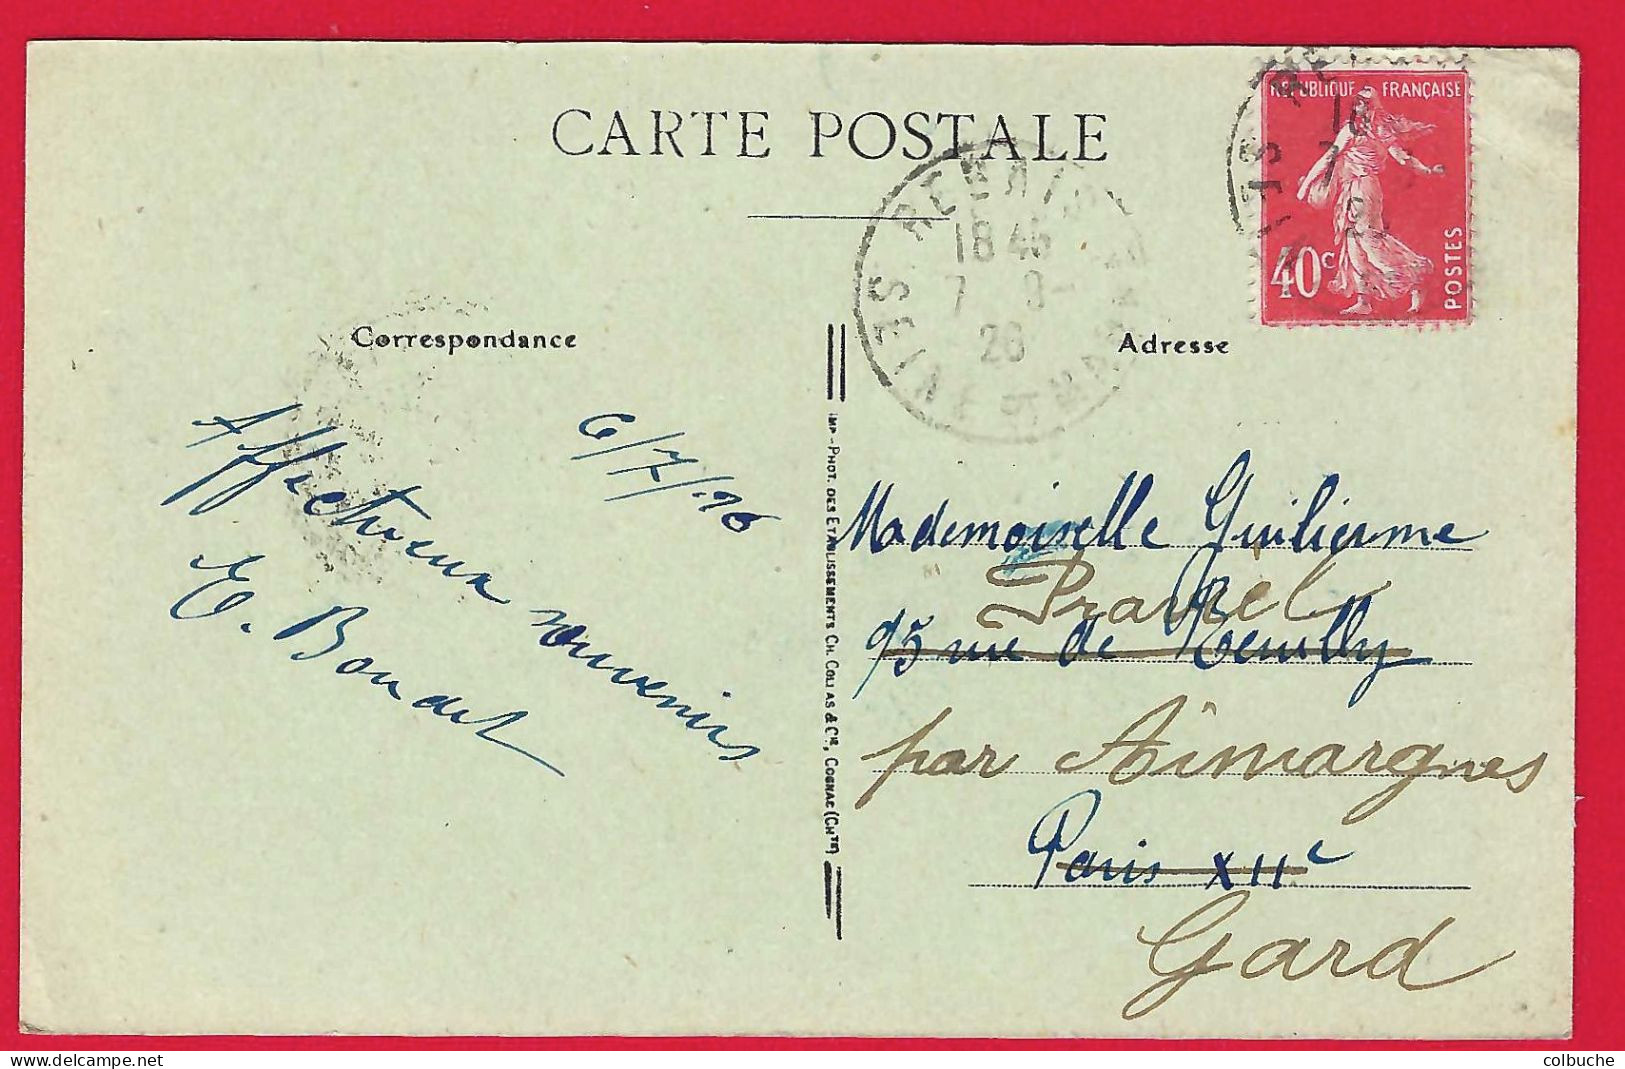 CARTE POSTALE
REPUBLIQUE FRANÇAISE
40c
POSTES
18 45
7 8-
26
SEINE
Correspondance
Adresse
6/7/26
Affectueux souvenirs
E. Boudet
IMP-PHOT. DES ETABLISSEMENTS CH. COLLAS & Cie, COGNAC (CHTE)
Mademoiselle Guilierme
95 rue de Reuilly
par Aimargues
Paris XIIe
Gard
colbuche